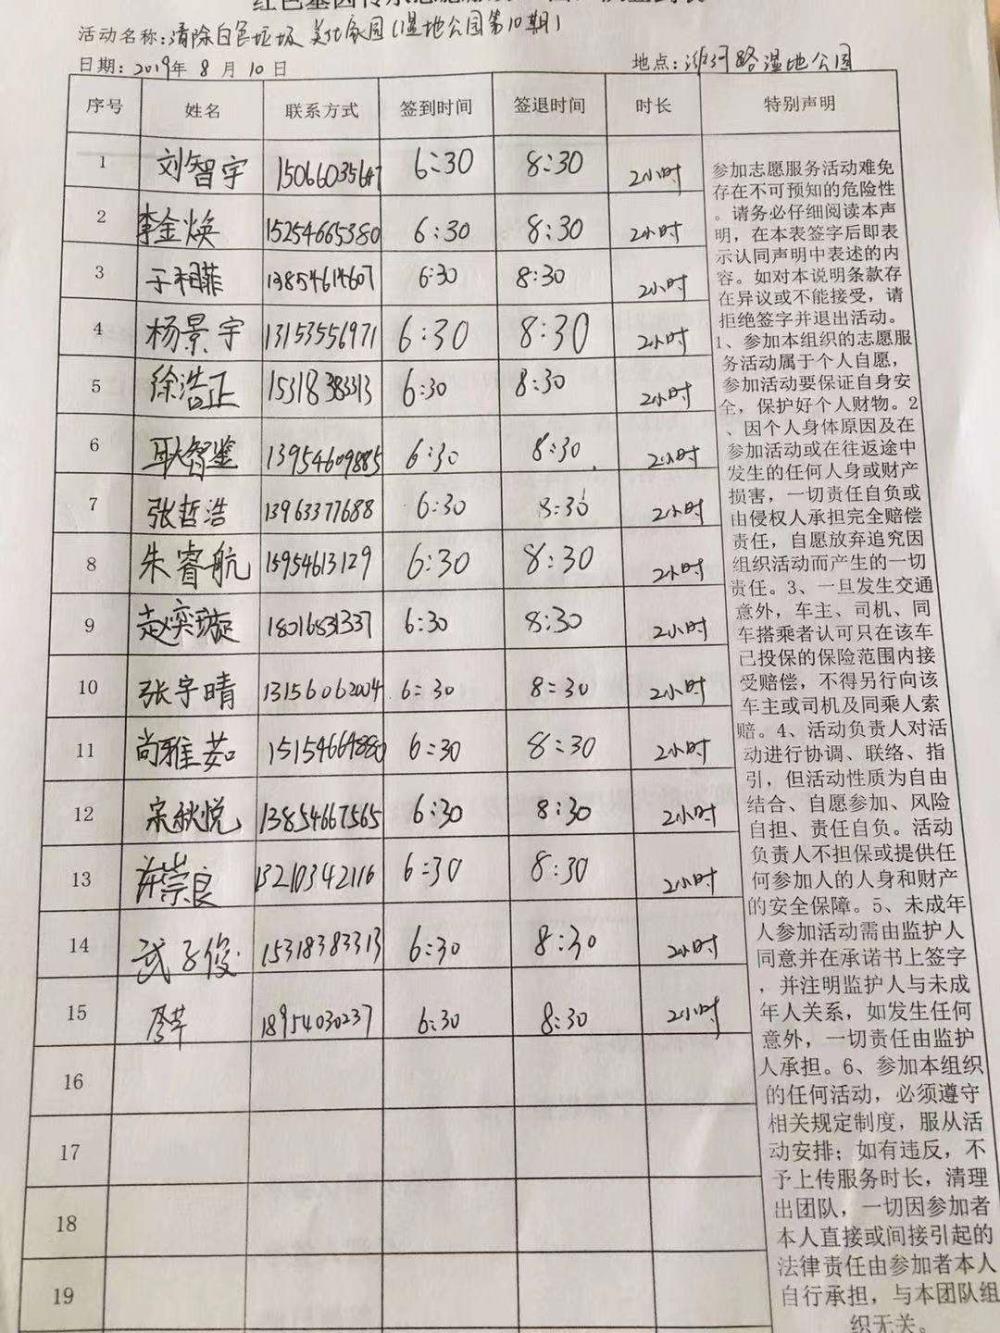 活动名称:清除白色垃圾 美化家园(湿地公园第10期)
日期:2019年 8 月 10 日 地点:潍河路湿地公园
序号 姓名 联系方式 签到时间 签退时间 时长 特别声明
1 刘智宇 15066035647 6:30 8:30 2小时
2 李金焕 15254665380 6:30 8:30 2小时
3 于相菲 13854614607 6:30 8:30 2小时
4 杨景宇 13153556971 6:30 8:30 2小时
5 徐浩正 15318383313 6:30 8:30 2小时
6 耿智鉴 13954609885 6:30 8:30 2小时
7 张哲浩 13963377688 6:30 8:30 2小时
8 朱睿航 15954613129 6:30 8:30 2小时
9 赵奕璇 18016831337 6:30 8:30 2小时
10 张宇晴 13156062004 6:30 8:30 2小时
11 尚雅茹 15154664880 6:30 8:30 2小时
12 宋秋悦 13854667565 6:30 8:30 2小时
13 许崇良 13210342116 6:30 8:30 2小时
14 武子俊 15318383313 6:30 8:30 2小时
15 18954030237 6:30 8:30 2小时
16
17
18
19
参加志愿服务活动难免
存在不可预知的危险性
。请务必仔细阅读本声
明,在本表签字后即表
示认同声明中表述的内
容。如对本说明条款存
在异议或不能接受,请
拒绝签字并退出活动。
1、参加本组织的志愿服
务活动属于个人自愿,
参加活动要保证自身安
全,保护好个人财物。2
、因个人身体原因及在
参加活动或在往返途中
发生的任何人身或财产
损害,一切责任自负或
由侵权人承担完全赔偿
责任,自愿放弃追究因
组织活动而产生的一切
责任。3、一旦发生交通
意外,车主、司机、同
车搭乘者认可只在该车
已投保的保险范围内接
受赔偿,不得另行向该
车主或司机及同乘人索
赔。4、活动负责人对活
动进行协调、联络、指
引,但活动性质为自由
结合、自愿参加、风险
自担、责任自负。活动
负责人不担保或提供任
何参加人的人身和财产
的安全保障。5、未成年
人参加活动需由监护人
同意并在承诺书上签字
,并注明监护人与未成
年人关系,如发生任何
意外,一切责任由监护
人承担。6、参加本组织
的任何活动,必须遵守
相关规定制度,服从活
动安排;如有违反,不
予上传服务时长,清理
出团队,一切因参加者
本人直接或间接引起的
法律责任由参加者本人
自行承担,与本团队组
织无关。